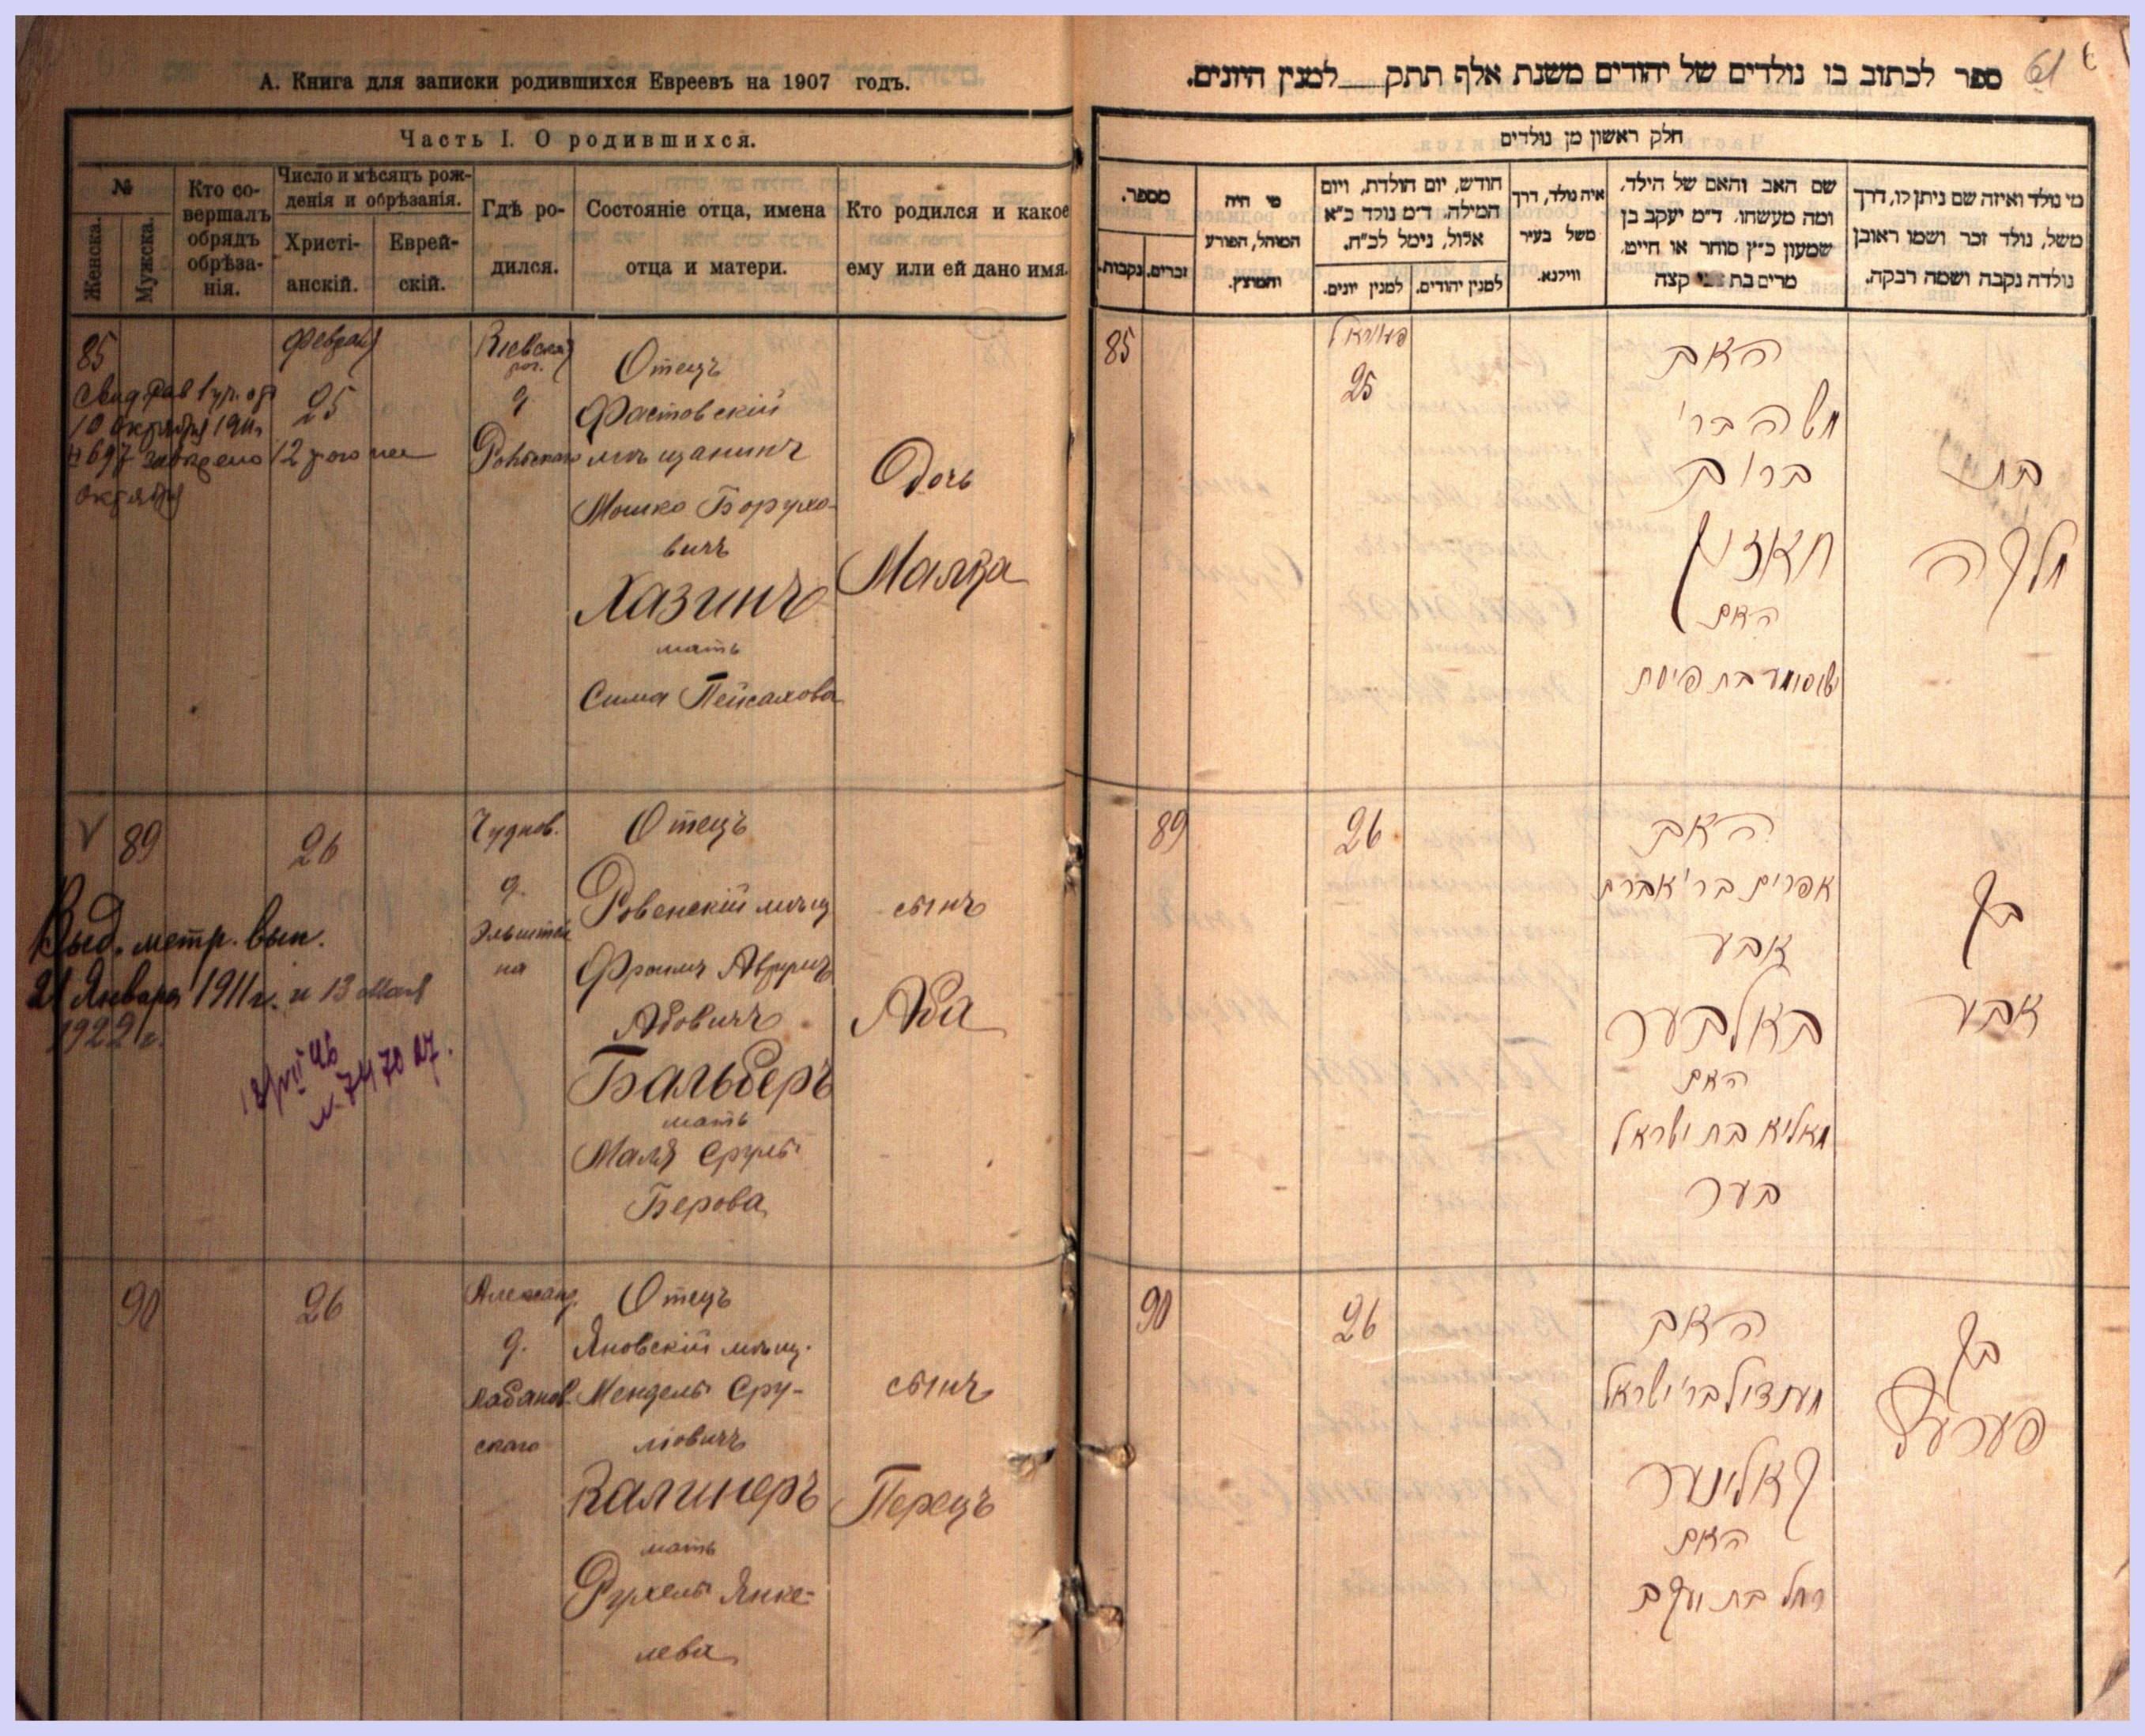 А. Книга для записки родившихся Евреевъ на 1907 годъ.
Часть I. О родившихся.
№
Женска.
Мужска.
Кто со-
вершалъ
обрядъ
обрѣза-
нія.
Число и мѣсяцъ рож-
денія и обрѣзанія.
Христі-
анскій.
Еврей-
скій.
Гдѣ ро-
дился.
Состояніе отца, имена
отца и матери.
Кто родился и какое
ему или ей дано имя.
85
10 октября 1911г
октября
Феврал
25
Кіевская
д
Отецъ
Фастовскій
мѣщанинъ
Мошко Борухо-
вичъ
Хазинъ
мать
Сима Пейсахова
Дочь
Малка
89
Выд. метр. вып.
21 Января 1911г. и 13 Мая
1922г.
26
Чуднов.
д.
Эльштей
на
Отецъ
Ровенскій мѣщ
Фроимъ Аврумъ
Абовичъ
Бальберъ
мать
Маля Сруль
Берова
сынъ
Аба
90
26
Александ.
д.
Лабанов
скаго
Отецъ
Яновскій мѣщ.
Мендель Сру-
ліовичъ
Калинеръ
мать
Рухель Янке-
лева
сынъ
Перецъ
ספר לכתוב בו נולדים של יהודים משנת אלף תתק למנין היונים.
61
חלק ראשון מן נולדים
מספר.
נקבות.
זכרים.
מי היה
המוהל, הפורע
והמוצץ.
חודש, יום הולדת, ויום
המילה. ד״מ נולד כ״א
אלול, נימל לכ״ח.
למנין יונים.
למנין יהודים.
איה נולד, דרך
משל בעיר
ווילנא.
שם האב והאם של הילד,
ומה מעשהו. ד״מ יעקב בן
שמעון כ״ץ סוחר או חייט.
מרים בת קצה
מי נולד ואיזה שם ניתן לו, דרך
משל, נולד זכר ושמו ראובן
נולדה נקבה ושמה רבקה.
85
פעוראל
25
האב
משה בר׳
ברוך
חאזין
האם
בת פיסח
בת
מלקה
89
26
האב
אפרים בר׳ אברהם
אבא
באלבער
האם
מאליא בת ישראל
בער
בן
אבא
90
26
האב
מענדיל בר׳ ישראל
קאלינער
האם
רחל בת יעקב
בן
פערעץ